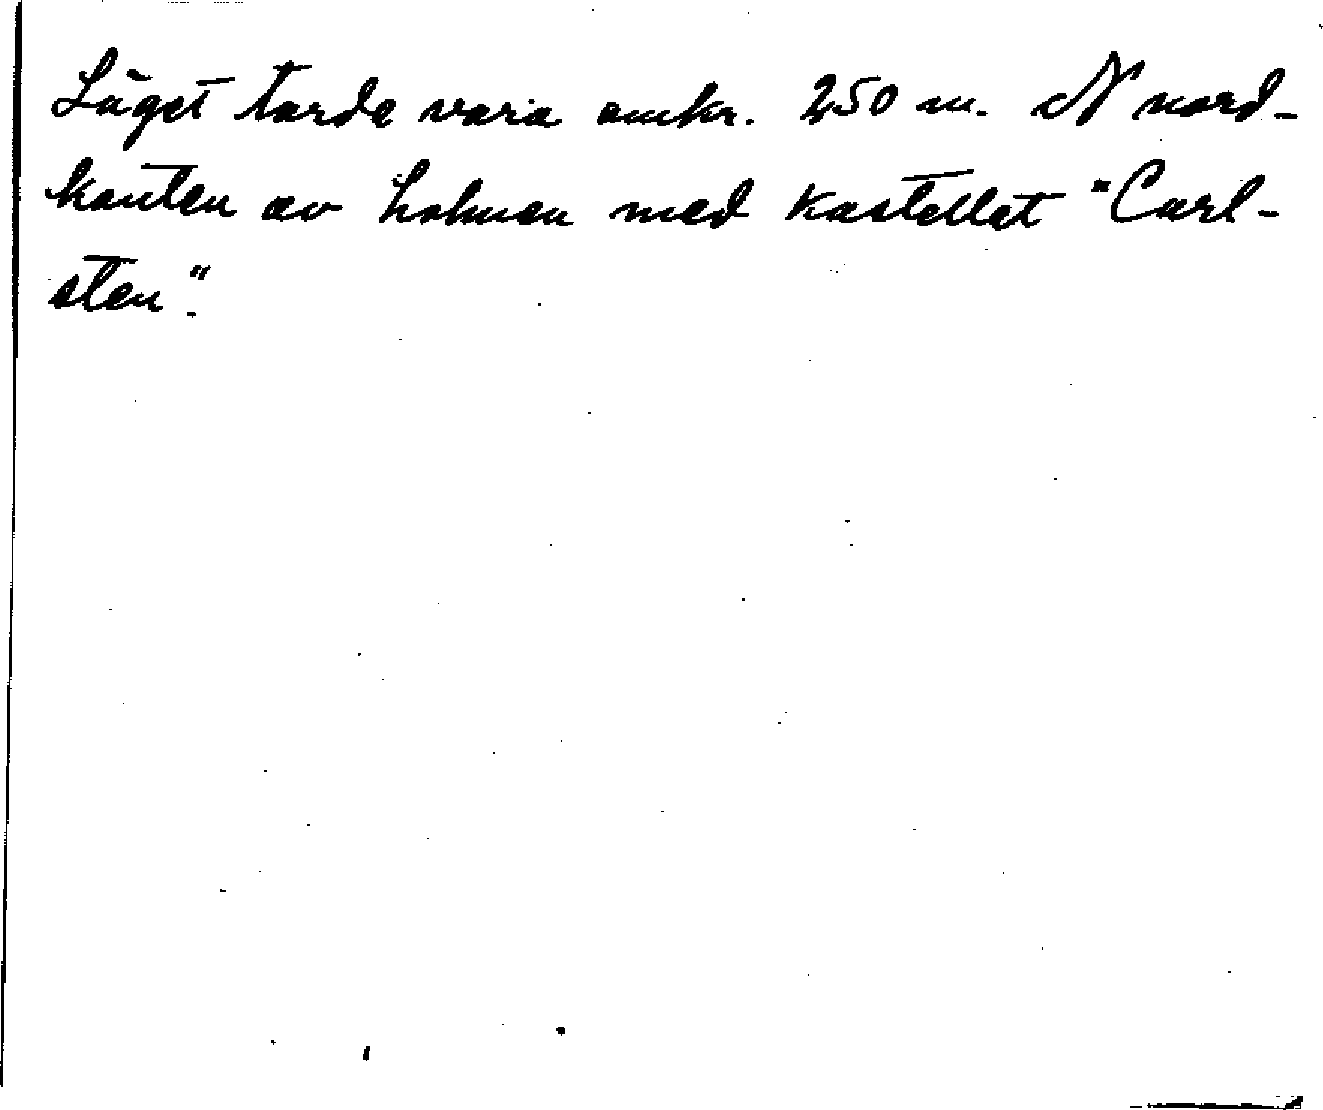 Läget torde vara omkr. 250 m. N nord-
kanten av holmen med kastellet "Carl-
sten".